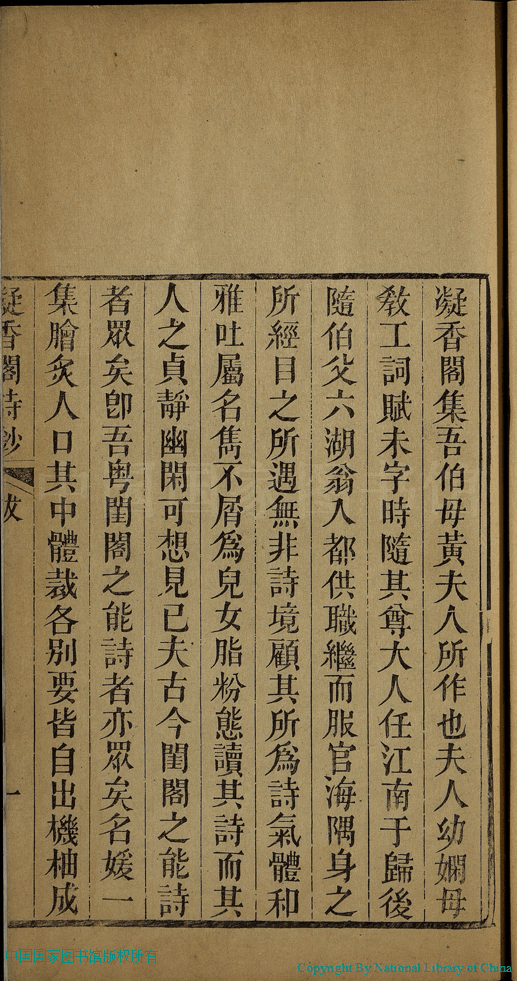 凝香閣集吾伯母黃夫人所作也夫人幼嫻母
敎工詞賦未字時隨其尊大人任江南于歸後
隨伯父六湖翁入都供職繼而服官海隅身之
所經目之所遇無非詩境顧其所爲詩氣體和
雅吐屬名雋不屑爲兒女脂粉態讀其詩而其
人之貞靜幽閑可想見已夫古今閨閣之能詩
者眾矣卽吾粵閨閣之能詩者亦眾矣名媛一
集膾炙人口其中體裁各別要皆自出機柚成
凝香閣詩鈔 跋 一
中国国家图书馆版权所有
Copyright By National Library of China